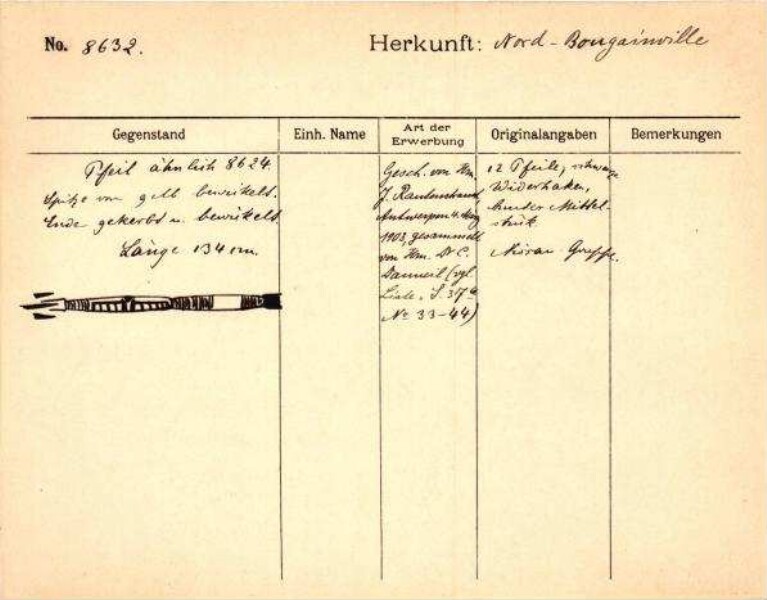 No. 8632. Herkunft: Nord-Bougainville
Gegenstand Einh. Name Art der Erwerbung Originalangaben Bemerkungen
Pfeil ähnlich 8624.
Spitze von gelb bewickelt.
Ende gekerbt u. bewickelt
Länge 134 cm.
Gesch. von Hrn.
J. Rautenstrauch,
Antwerpen 4. May
1903, gesammelt
von Hrn. Dr C.
Danneil (vgl.
Liste, S. 37a
No 33-44)
12 Pfeile, schwarze
Widerhaken,
bunter Mittel-
stück